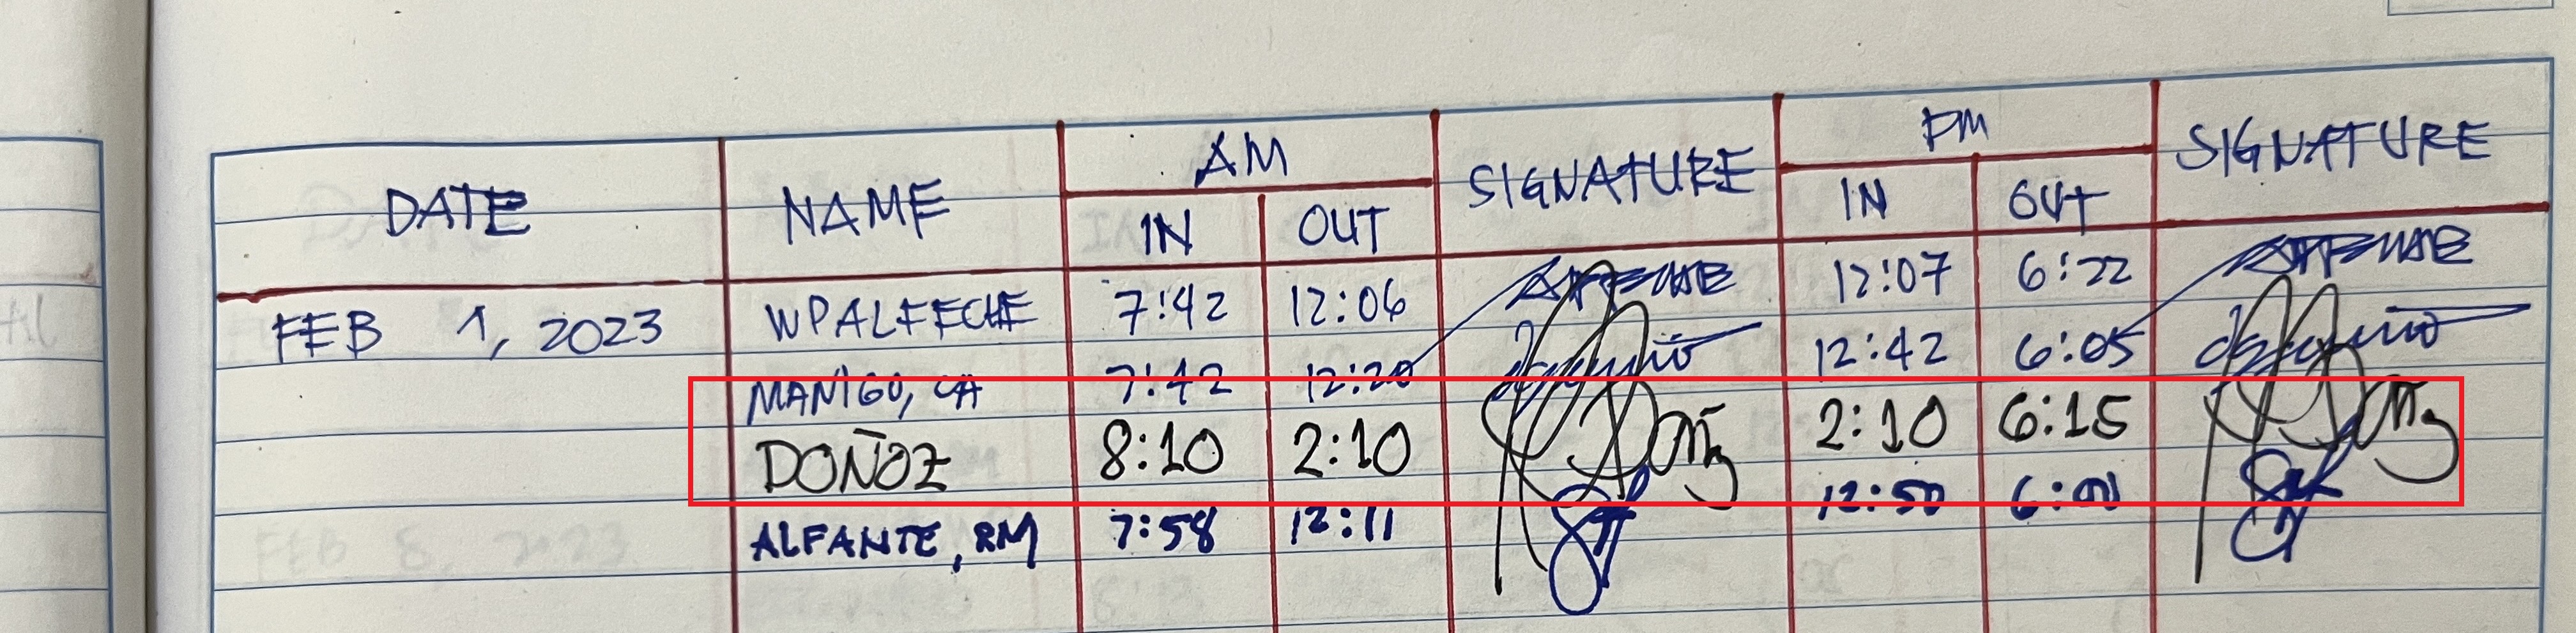 DATE NAME AM SIGNATURE PM SIGNATURE
IN OUT IN OUT
FEB 1, 2023 WPALFECHE 7:42 12:06 12:07 6:22
MANIGO, CA 7:42 12:20 12:42 6:05
DOÑOZ 8:10 2:10 2:10 6:15
ALFANTE, RM 7:58 12:11 12:50 6:01
FEB 8, 2023